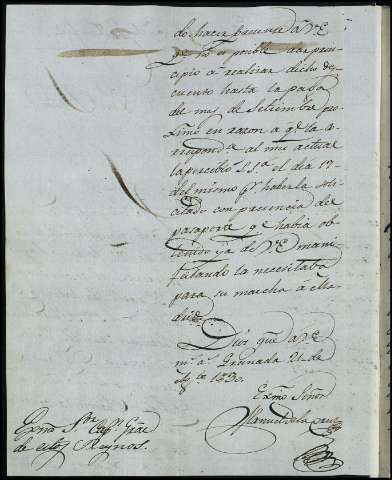 do hacer presente a V.E.
q.e no es posible dar prin-
cipio a realizar dicho des-
cuento hasta la paga
del mes de Setiembre pro-
ximo en razon a q.e la co-
rrespond.te al mes actual
la percibio S.S.a el dia 17
del mismo p.r haberla soli-
citado con presencia del
pasaporte q.e habia ob-
tenido ya de V.E. mani-
festando la necesitaba
para su marcha a Ma-
drid.
Dios gue. a V.E.
m.s a.s Granada 21 de
Ag.to 1830.
Exmo Señor
Manuel de la
Exmo S.or Cap.n Gral
de estos Reynos.